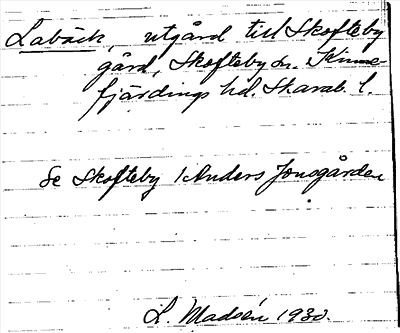 Labäck, utgård till Skofteby
gård, Skofteby sn. Kinne-
fjärdings hd. Skarab. l.
Se Skofteby 1 Anders Jonsgården
L. Madsén 1930.